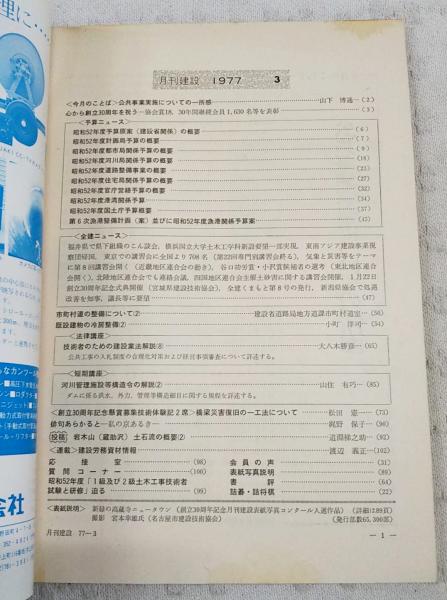 月刊建設 1977 3
<今月のことば>公共事業実施についての一所感 山下 博通…(2)
心から創立30周年を祝う―協会賞18、30年間継続会員1,630名等を表彰 (3)
<予算ニュース>
昭和52年度予算原案(建設省関係)の概要 (6)
昭和52年度計画局予算の概要 (7)
昭和52年度都市局関係予算の概要 (9)
昭和52年度河川局関係予算の概要 (18)
昭和52年度道路整備事業の概要 (23)
昭和52年度住宅局関係予算の概要 (27)
昭和52年度官庁営繕予算の概要 (32)
昭和52年度港湾関係予算 (34)
昭和52年度国土庁予算概要 (37)
第6次漁港整備計画(案)並びに昭和52年度漁港関係予算案 (45)
<全建ニュース>
福井県で県下組織のこん談会、横浜国立大学土木工学科新設要望一部実現、東南アジア建設事業視
察団帰国、東京での講習会に全国より708名(第22回専門別講習会終る)、気象と災害等をテーマ
に第8回講習会開く(近畿地区連合会の動き)、谷口功労賞・小沢賞候補者の選考(東北地区連合
会開く)、北陸地区連合会でも連絡会議、四国地区連合会主催土砂害に関する講習会開催、1月22日
創立30周年記念式典開催(宮城県建設技術協会)、全建くまもと第8号の発行、新潟県協会で処遇
改善を知事、議長等に要望 (47)
市町村道の整備について② 建設省道路局地方道課市町村道室…(56)
既設建物の冷房整備② 小町 洋司…(54)
<法律講座>
技術者のための建設業法解説⑧ 大八木勝彦…(65)
公共工事の入札制度の合理化対策および経営事項審査について詳述する。
<短期講座>
河川管理施設等構造令の解説② 山住 有巧…(81)
ダムに係る洪水、外力、管理等構造細目に関する規程を詳述する。
<創立30周年記念懸賞募集技術体験記2席>橋梁災害復旧の一工法について 松田 憲一…(73)
俳句あらかると―私の京あるき― 梶野 保子…(96)
投稿 岩木山(蔵助沢)土石流の概要② 道園雄之助…(92)
<連載>建設労務資材情報 渡辺 義正…(102)
応接室 (98) 会員の声 (31)
質問コーナー (100) 表紙写真説明 (89)
昭和52年度「1級及び2級土木工事技術者 書評 (64)
試験と研修」迫る (99) 詰碁・詰将棋 (22)
<表紙説明> 新緑の高蔵寺ニュータウン(創立30周年記念月刊建設表紙写真コンクール入選作品)(詳細は89頁)
撮影 宮本幸雄氏(名古屋市建設技術協会) (発行部数65,300部)
月刊建設 77―3
― 1 ―